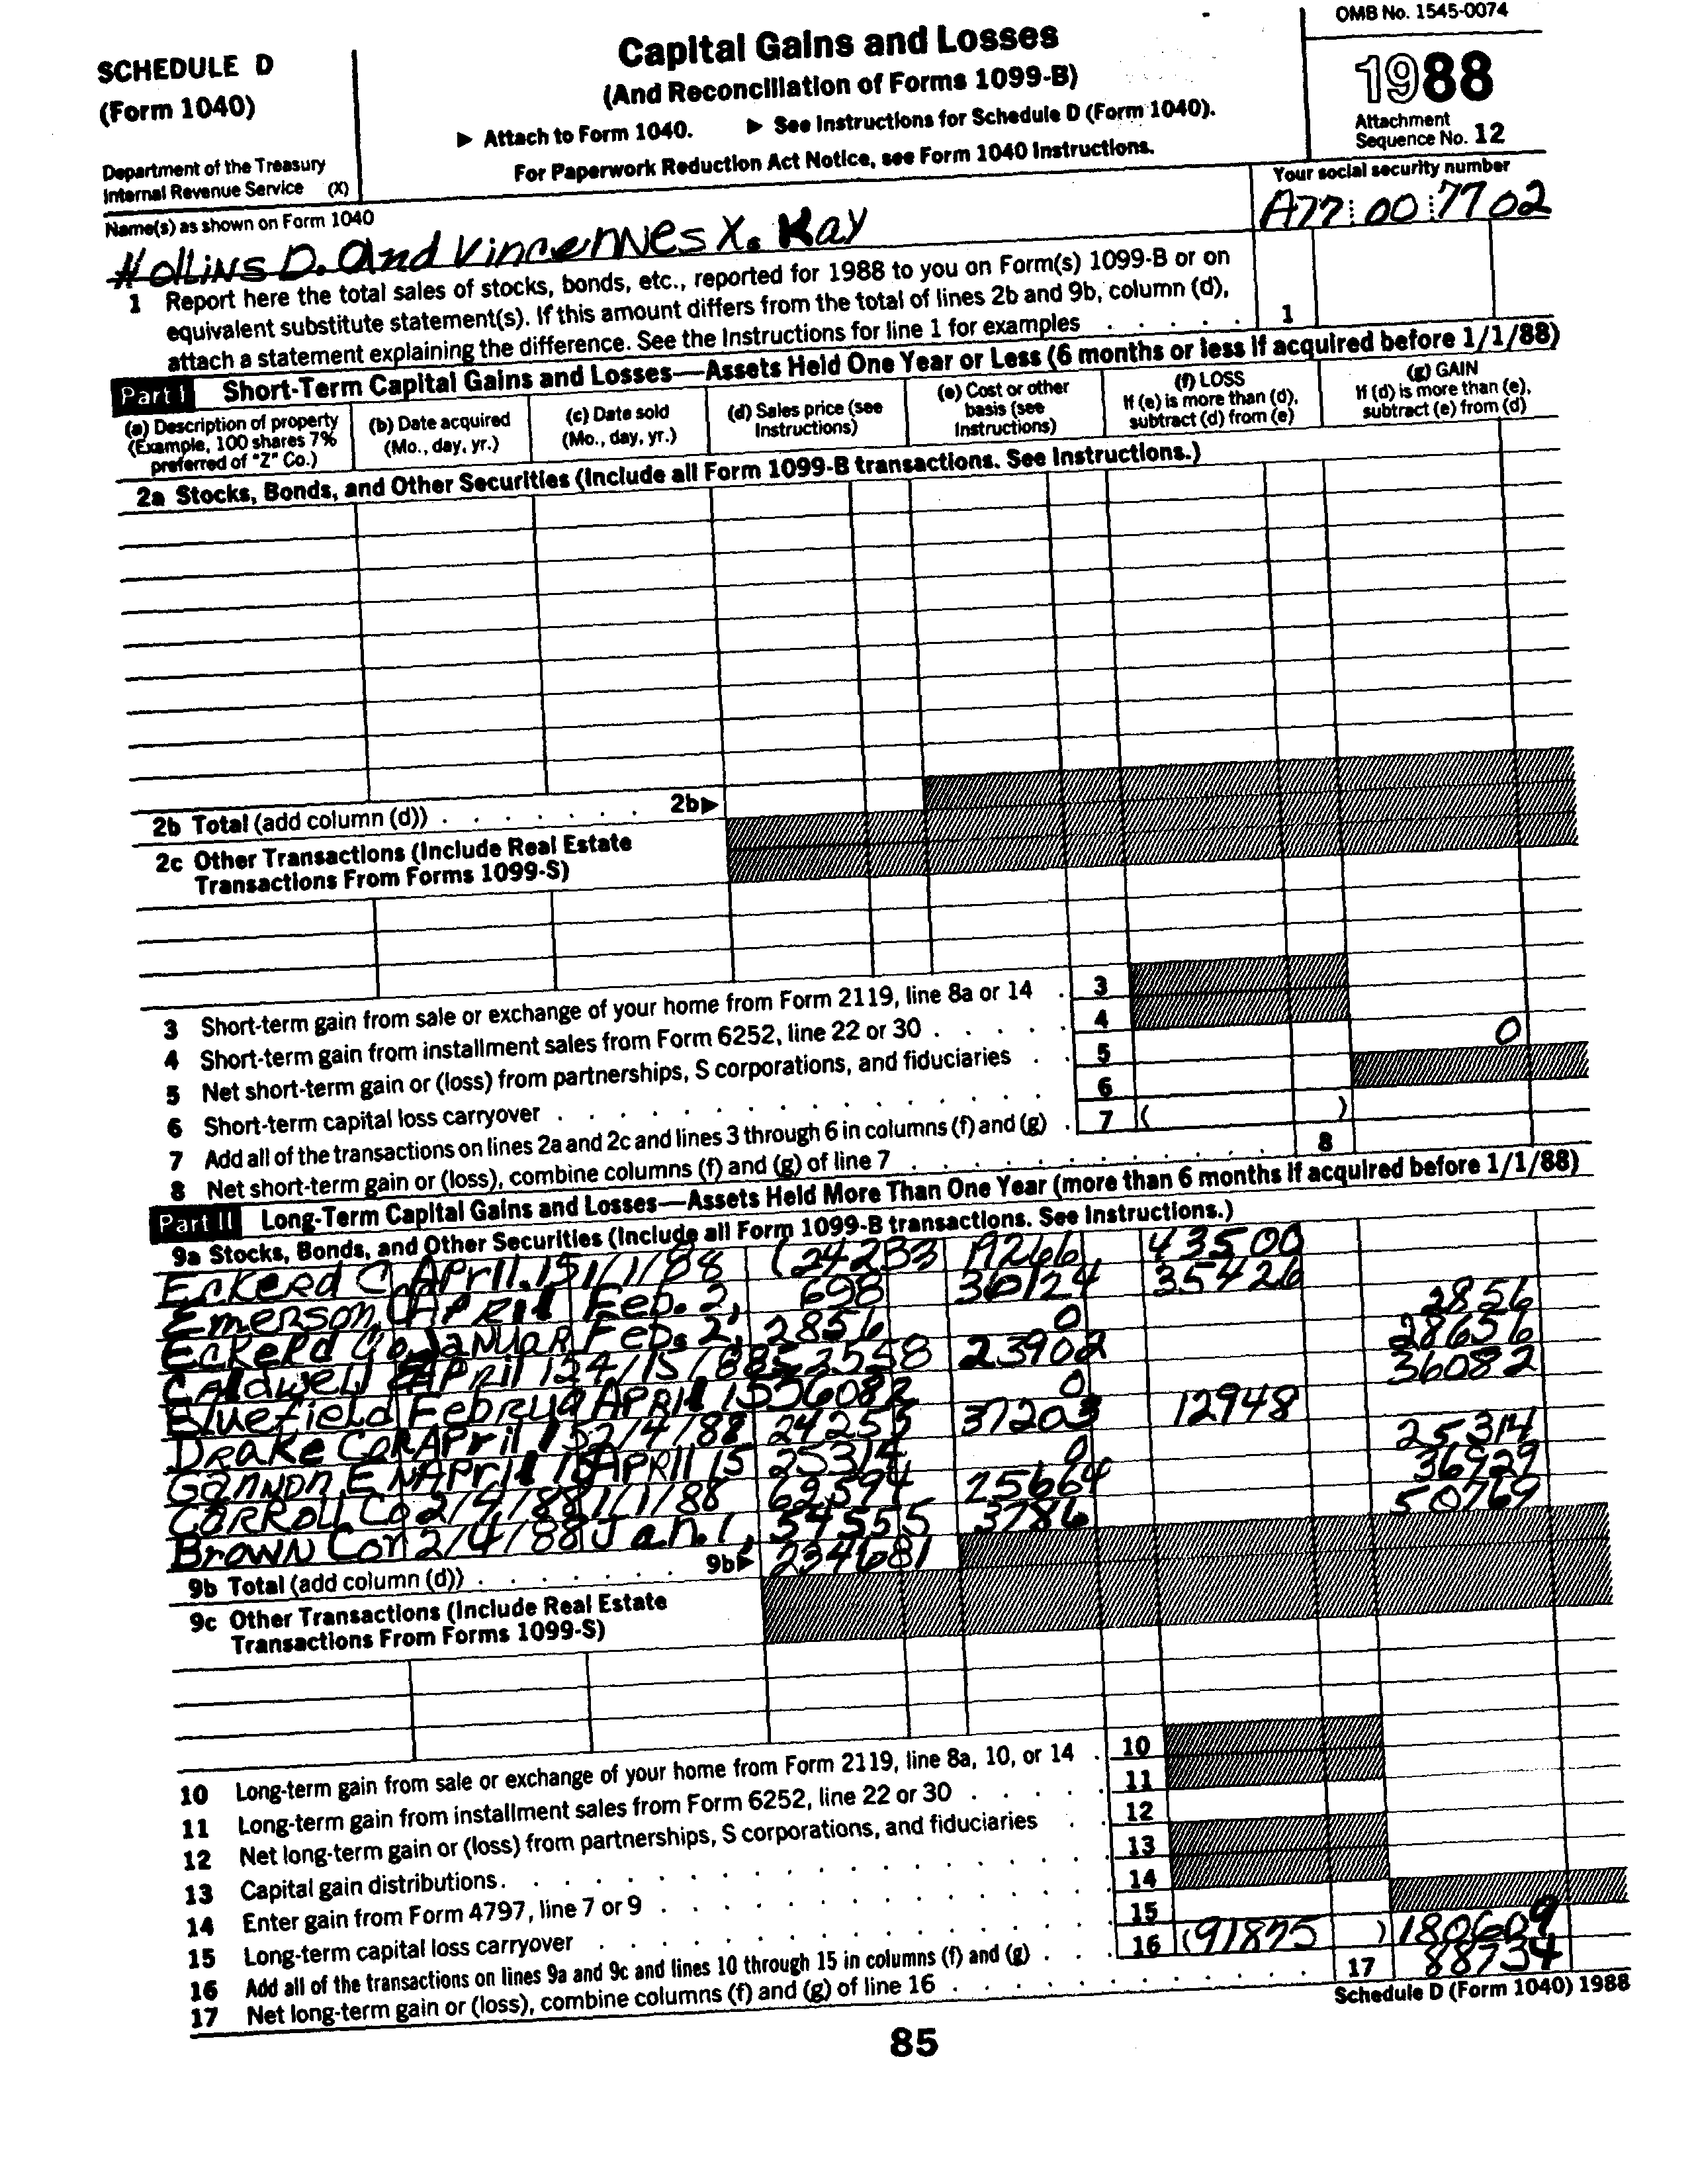 SCHEDULE D
(Form 1040)
Department of the Treasury
Internal Revenue Service (X)
Capital Gains and Losses
(And Reconciliation of Forms 1099-B)
▶ Attach to Form 1040. ▶ See Instructions for Schedule D (Form 1040).
For Paperwork Reduction Act Notice, see Form 1040 Instructions.
OMB No. 1545-0074
1988
Attachment
Sequence No. 12
Name(s) as shown on Form 1040
Hollins D. and Vincennes X. Kay
Your social security number
A77 00 7702
1 Report here the total sales of stocks, bonds, etc., reported for 1988 to you on Form(s) 1099-B or on
equivalent substitute statement(s). If this amount differs from the total of lines 2b and 9b, column (d),
attach a statement explaining the difference. See the Instructions for line 1 for examples . . . . . 1
Part I Short-Term Capital Gains and Losses—Assets Held One Year or Less (6 months or less if acquired before 1/1/88)
(a) Description of property
(Example, 100 shares 7%
preferred of "Z" Co.)
(b) Date acquired
(Mo., day, yr.)
(c) Date sold
(Mo., day, yr.)
(d) Sales price (see
Instructions)
(e) Cost or other
basis (see
Instructions)
(f) LOSS
If (e) is more than (d),
subtract (d) from (e)
(g) GAIN
If (d) is more than (e),
subtract (e) from (d)
2a Stocks, Bonds, and Other Securities (Include all Form 1099-B transactions. See Instructions.)
2b Total (add column (d)) . . . . . . . 2b▶
2c Other Transactions (Include Real Estate
Transactions From Forms 1099-S)
3 Short-term gain from sale or exchange of your home from Form 2119, line 8a or 14 . 3
4 Short-term gain from installment sales from Form 6252, line 22 or 30 . . . . . 4
5 Net short-term gain or (loss) from partnerships, S corporations, and fiduciaries . . 5 0
6 Short-term capital loss carryover . . . . . . . . . . . . . . . 6
7 Add all of the transactions on lines 2a and 2c and lines 3 through 6 in columns (f) and (g) . 7 ( )
8 Net short-term gain or (loss), combine columns (f) and (g) of line 7 . . . . . . . . . . . . 8
Part II Long-Term Capital Gains and Losses—Assets Held More Than One Year (more than 6 months if acquired before 1/1/88)
9a Stocks, Bonds, and Other Securities (Include all Form 1099-B transactions. See Instructions.)
Eckerd C April 15 1/1/88 (24233 19266 43500
Emerson, C April Feb. 2, 698 36124 35426
Eckerd Co Januar Feb. 2, 2856 0 2856
Caldwell E April 15 4/15/88 52558 23902 28656
Bluefield Februa April 15 36082 0 36082
Drake Cor April 15 2/4/88 24255 37203 12948
Gannon En April 15 April 15 25314 0 25314
Corroll Co 2/4/88 1/1/88 62594 25664 36929
Brown Cor 2/4/88 Jan. 1, 54555 3786 50769
9b Total (add column (d)) . . . . . . . 9b▶ 234681
9c Other Transactions (Include Real Estate
Transactions From Forms 1099-S)
10 Long-term gain from sale or exchange of your home from Form 2119, line 8a, 10, or 14 . 10
11 Long-term gain from installment sales from Form 6252, line 22 or 30 . . . . . 11
12 Net long-term gain or (loss) from partnerships, S corporations, and fiduciaries . . 12
13 Capital gain distributions . . . . . . . . . . . . . . . . . 13
14 Enter gain from Form 4797, line 7 or 9 . . . . . . . . . . . . 14
15 Long-term capital loss carryover . . . . . . . . . . . . . . 15
16 Add all of the transactions on lines 9a and 9c and lines 10 through 15 in columns (f) and (g) . . . 16 (91875 ) 180609
17 Net long-term gain or (loss), combine columns (f) and (g) of line 16 . . . . . . . . . . . . 17 88734
Schedule D (Form 1040) 1988
85